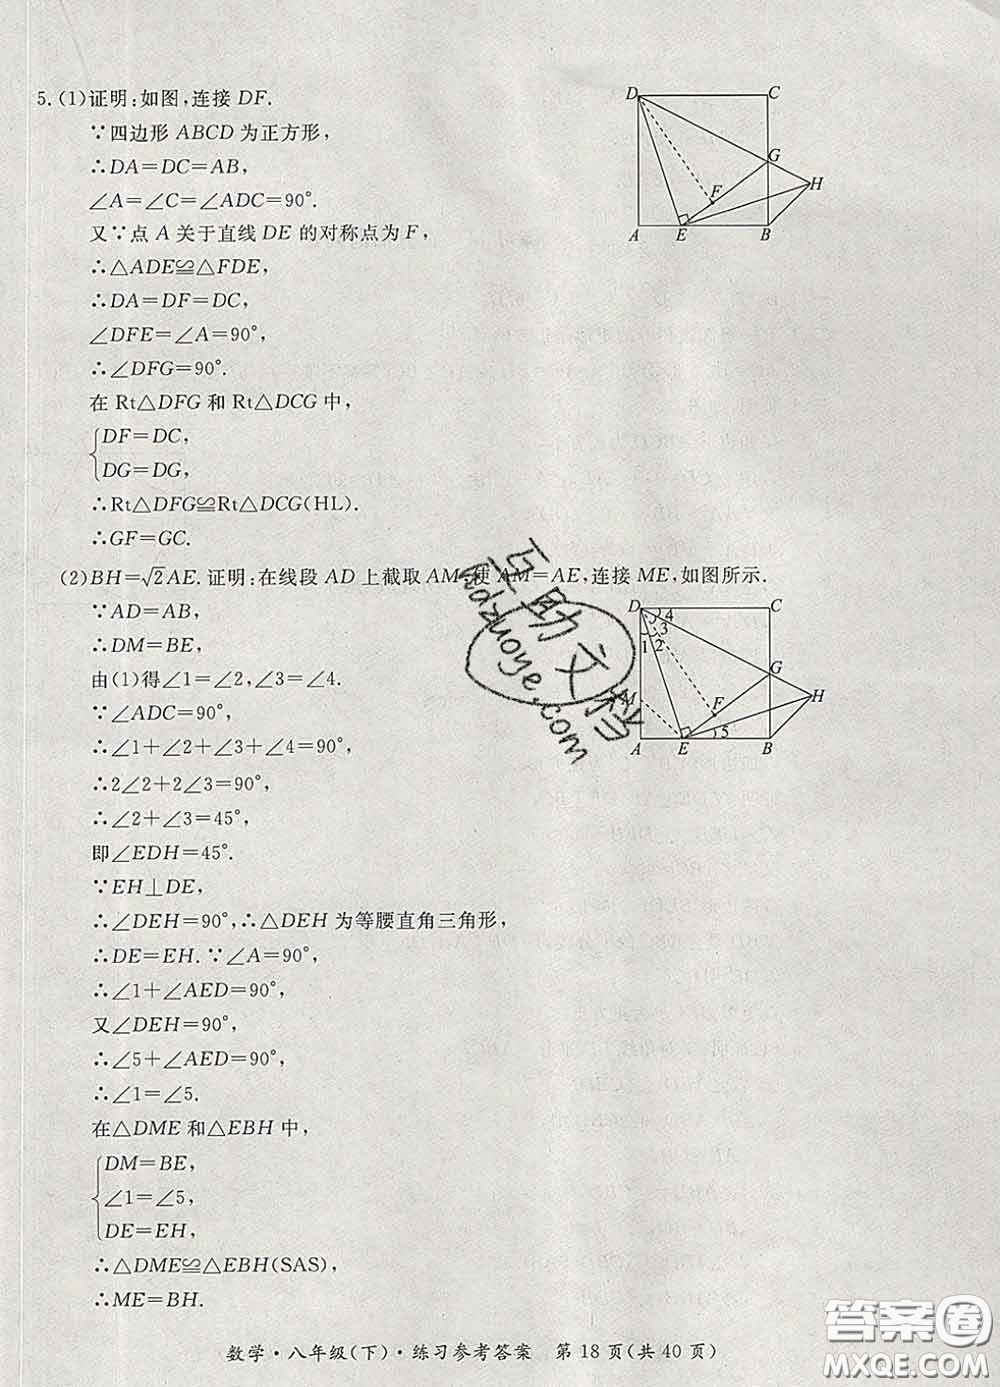 5.(1)证明:如图,连接 DF.
∵四边形 ABCD 为正方形,
∴DA=DC=AB,
∠A=∠C=∠ADC=90°.
又∵点 A 关于直线 DE 的对称点为 F,
∴△ADE≌△FDE,
∴DA=DF=DC,
∠DFE=∠A=90°,
∴∠DFG=90°.
在 Rt△DFG 和 Rt△DCG 中,
DF=DC,
DG=DG,
∴Rt△DFG≌Rt△DCG(HL).
∴GF=GC.
D C
G
H
F
A E B
(2)BH=√2AE.证明:在线段 AD 上截取 AM,使 AM=AE,连接 ME,如图所示.
∵AD=AB,
∴DM=BE,
由(1)得∠1=∠2,∠3=∠4.
∵∠ADC=90°,
∴∠1+∠2+∠3+∠4=90°,
∴2∠2+2∠3=90°,
∴∠2+∠3=45°,
即∠EDH=45°.
∵EH⊥DE,
∴∠DEH=90°,∴△DEH 为等腰直角三角形,
∴DE=EH.∵∠A=90°,
∴∠1+∠AED=90°,
又∠DEH=90°,
∴∠5+∠AED=90°,
∴∠1=∠5.
在△DME 和△EBH 中,
DM=BE,
∠1=∠5,
DE=EH,
∴△DME≌△EBH(SAS),
∴ME=BH.
D C
4
3
1 2
G
H
M F
5
A E B
互助文档
hdzuoye.com
数学·八年级(下)·练习参考答案 第 18 页(共 40 页)
答案圈
MXQE.COM